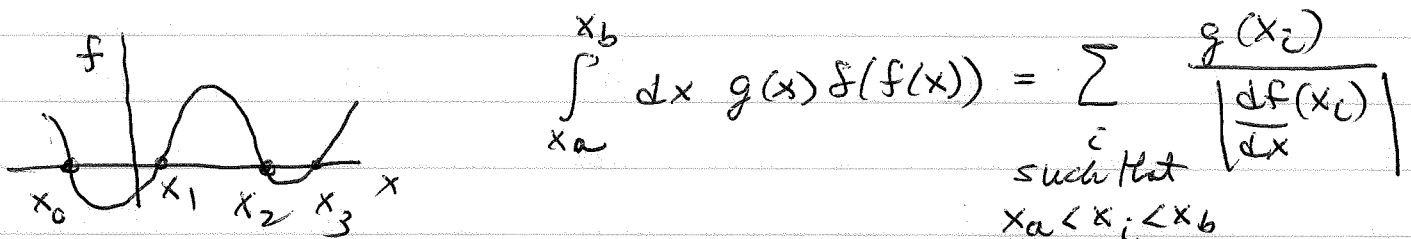 f
x₀ x₁ x₂ x₃ x
∫_{xₐ}^{x_b} dx g(x) δ(f(x)) = ∑_i g(xᵢ) / |df/dx (xᵢ)|
such that
xₐ < xᵢ < x_b